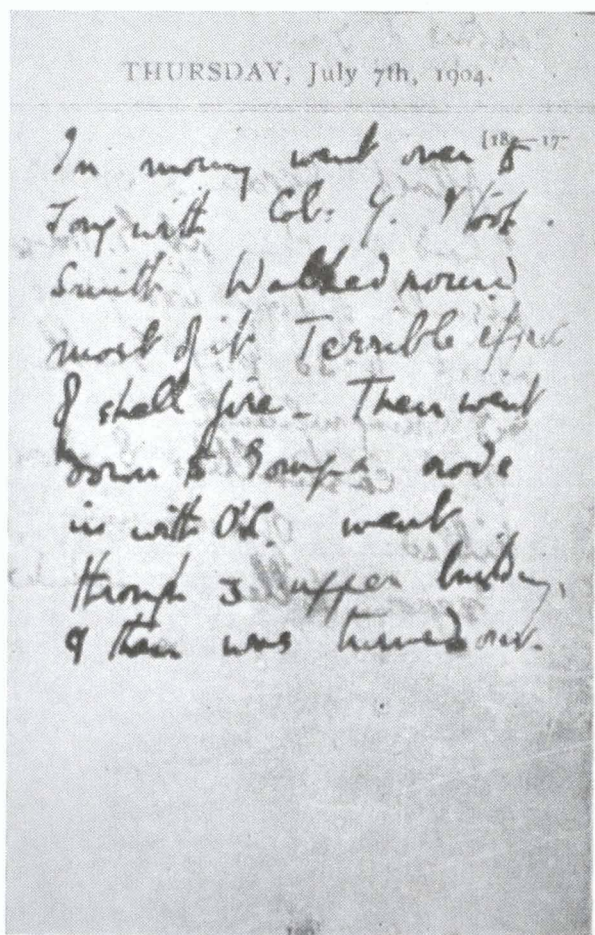 THURSDAY, July 7th, 1904.
[18 —17
In morning went over to
Jong with Col. Y.
Smith Walked round
most of it Terrible
of shell fire - Then went
down to Gompa rode
in with O'C. went
through 3 upper building,
& then was turned out.